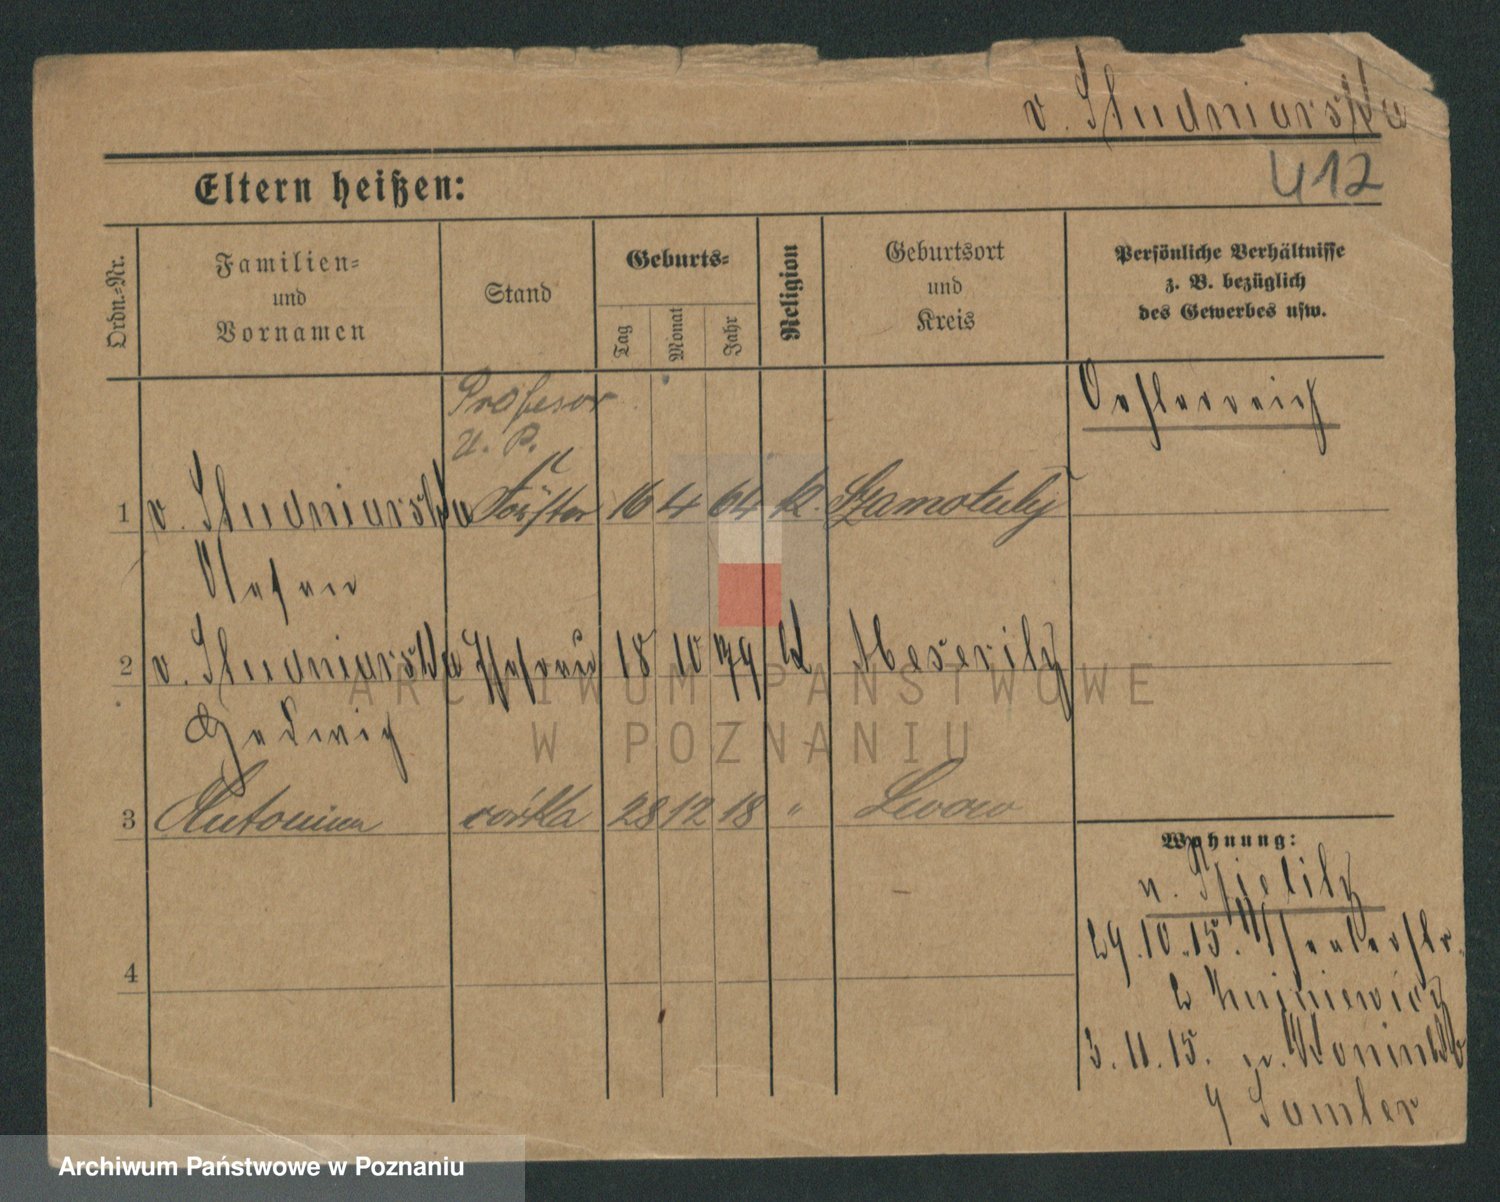 v. Studniarska
412
Eltern heißen:
Ordn.-Nr.
Familien-
und
Vornamen
Stand
Geburts-
Tag
Monat
Jahr
Religion
Geburtsort
und
Kreis
Persönliche Verhältnisse
z. B. bezüglich
des Gewerbes usw.
Profesor
U. P.
Oesterreich
1 v. Studniarska Förster 16 4 64 k. Szamotuły
Stefan
2 v. Studniarska Ehefrau 18 10 79 k Meseritz
Hedwig
3 Antonina córka 28 12 18 " Lwow
4
Wohnung:
29.10.15.
3.11.15. n.
Samter
ARCHIWUM PAŃSTWOWE
W POZNANIU
Archiwum Państwowe w Poznaniu